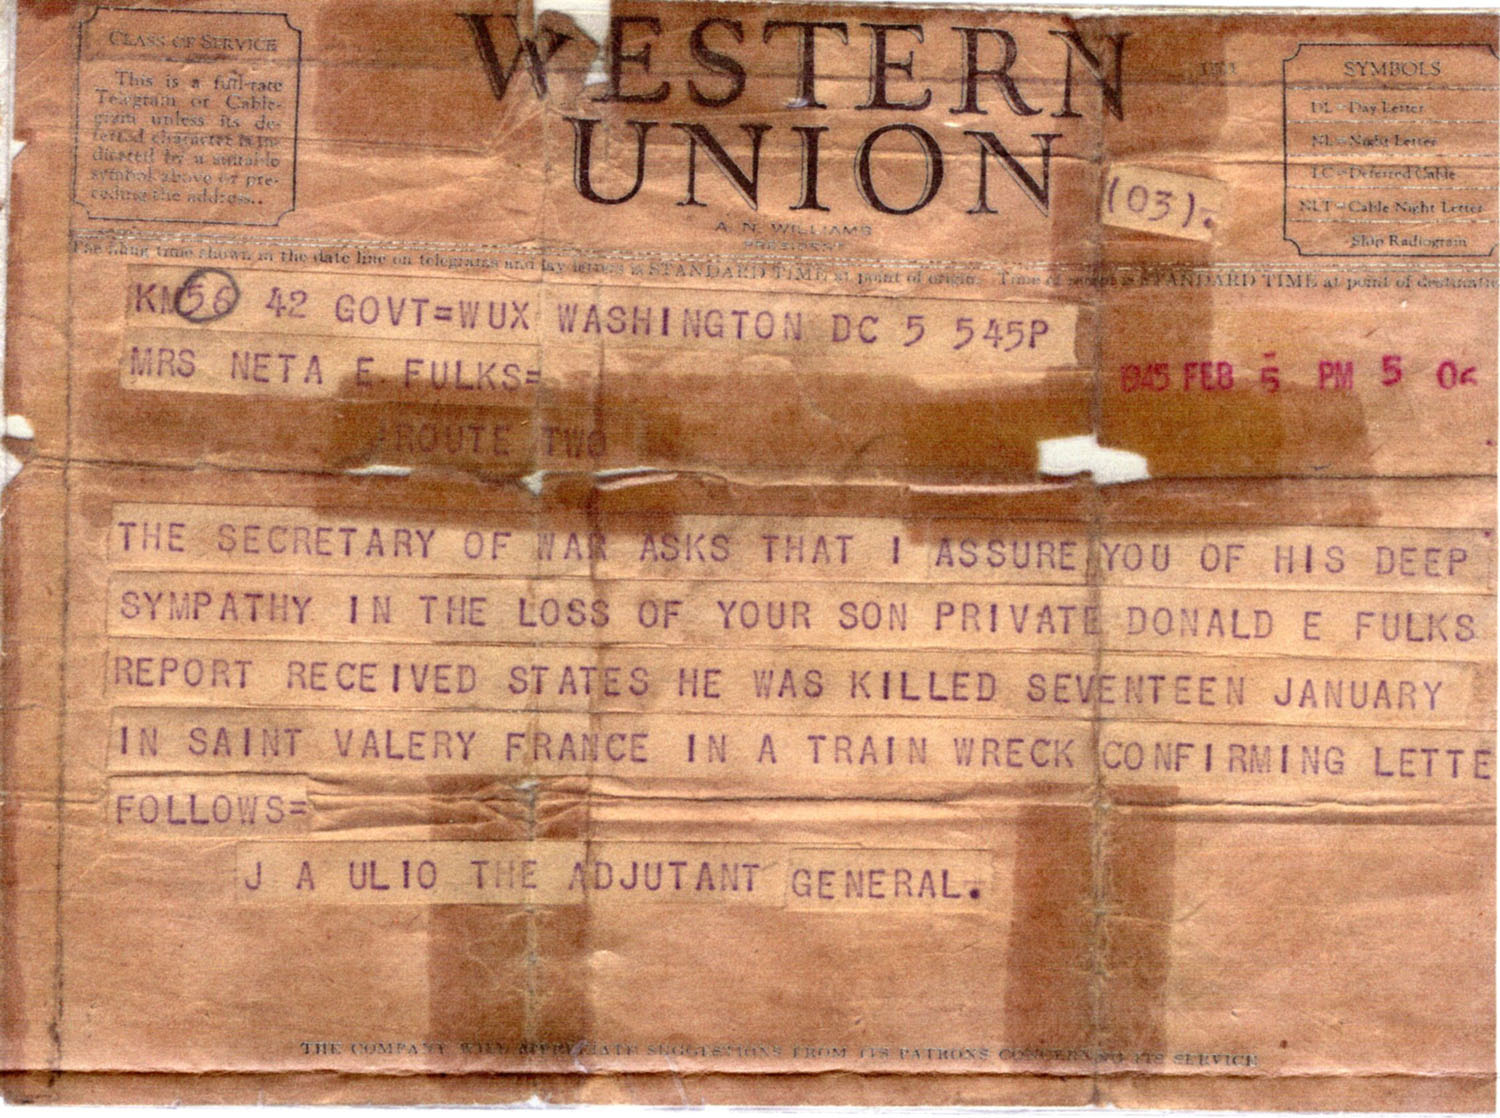 CLASS OF SERVICE
This is a full-rate
Telegram or Cable-
gram unless its de-
ferred character is in-
dicated by a suitable
symbol above or pre-
ceding the address.
WESTERN
UNION
A. N. WILLIAMS
PRESIDENT
(03).
SYMBOLS
DL = Day Letter
NL = Night Letter
LC = Deferred Cable
NLT = Cable Night Letter
Ship Radiogram
The filing time shown in the date line on telegrams and day letters is STANDARD TIME at point of origin. Time of receipt is STANDARD TIME at point of destination
KM56 42 GOVT=WUX WASHINGTON DC 5 545P
MRS NETA E FULKS=
1945 FEB 5 PM 5 06
ROUTE TWO
THE SECRETARY OF WAR ASKS THAT I ASSURE YOU OF HIS DEEP
SYMPATHY IN THE LOSS OF YOUR SON PRIVATE DONALD E FULKS
REPORT RECEIVED STATES HE WAS KILLED SEVENTEEN JANUARY
IN SAINT VALERY FRANCE IN A TRAIN WRECK CONFIRMING LETTE
FOLLOWS=
J A ULIO THE ADJUTANT GENERAL.
THE COMPANY WILL APPRECIATE SUGGESTIONS FROM ITS PATRONS CONCERNING ITS SERVICE